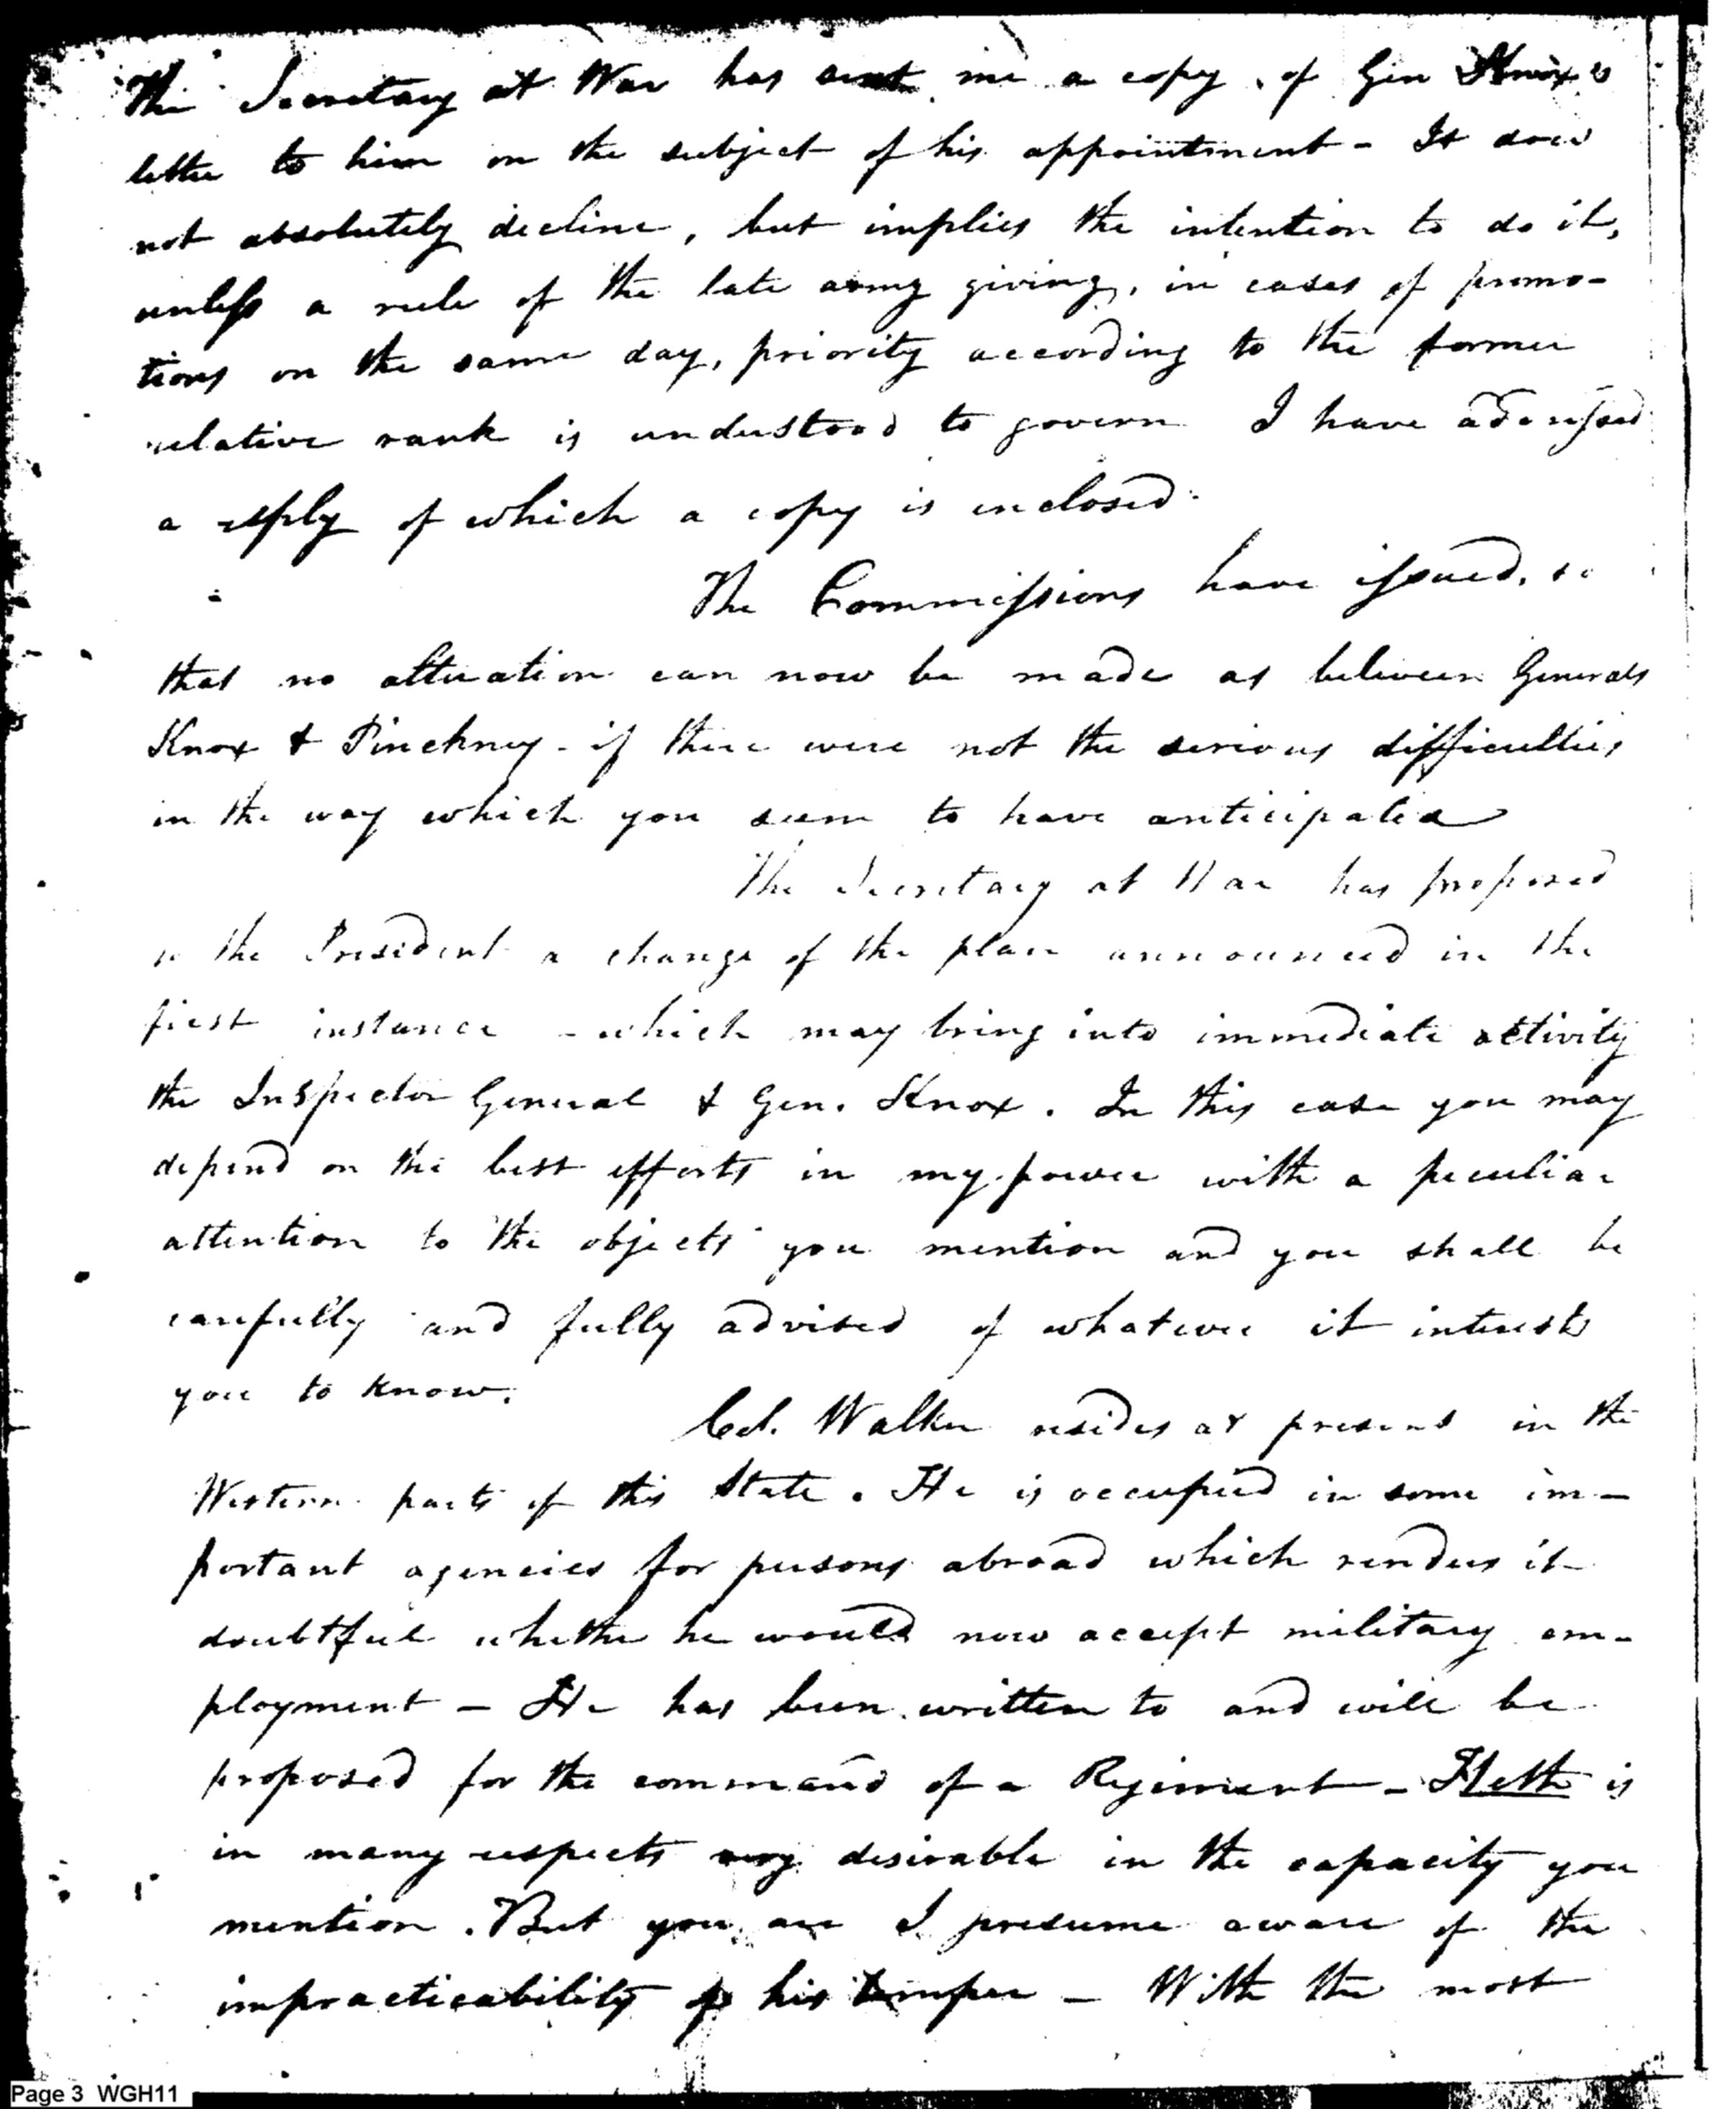 The Secretary at War has sent me a copy of Gen Knox's
letter to him on the subject of his appointment - It does
not absolutely decline, but implies the intention to do it,
unless a rule of the late army giving, in cases of promo-
tions on the same day, priority according to the former
relative rank is understood to govern I have adressed
a reply of which a copy is inclosed.
The Commissions have issued, so
that no alteration can now be made as between Generals
Knox & Pinckney - if there were not the serious difficulties
in the way which you seem to have anticipated
The Secretary at War has proposed
to the President a change of the plan announced in the
first instance - which may bring into immediate activity
the Inspector General & Gen. Knox. In this case you may
depend on the best efforts in my power with a peculiar
attention to the objects you mention and you shall be
carefully and fully advised of whatever it interests
you to know.
Col. Walker resides at present in the
Western parts of this State. He is occupied in some im-
portant agencies for persons abroad which renders it
doubtful whether he would now accept military em-
ployment - He has been written to and will be
proposed for the command of a Regiment - Heth is
in many respects very desirable in the capacity you
mention. But you are I presume aware of the
impracticability of his temper - With the most
Page 3 WGH11